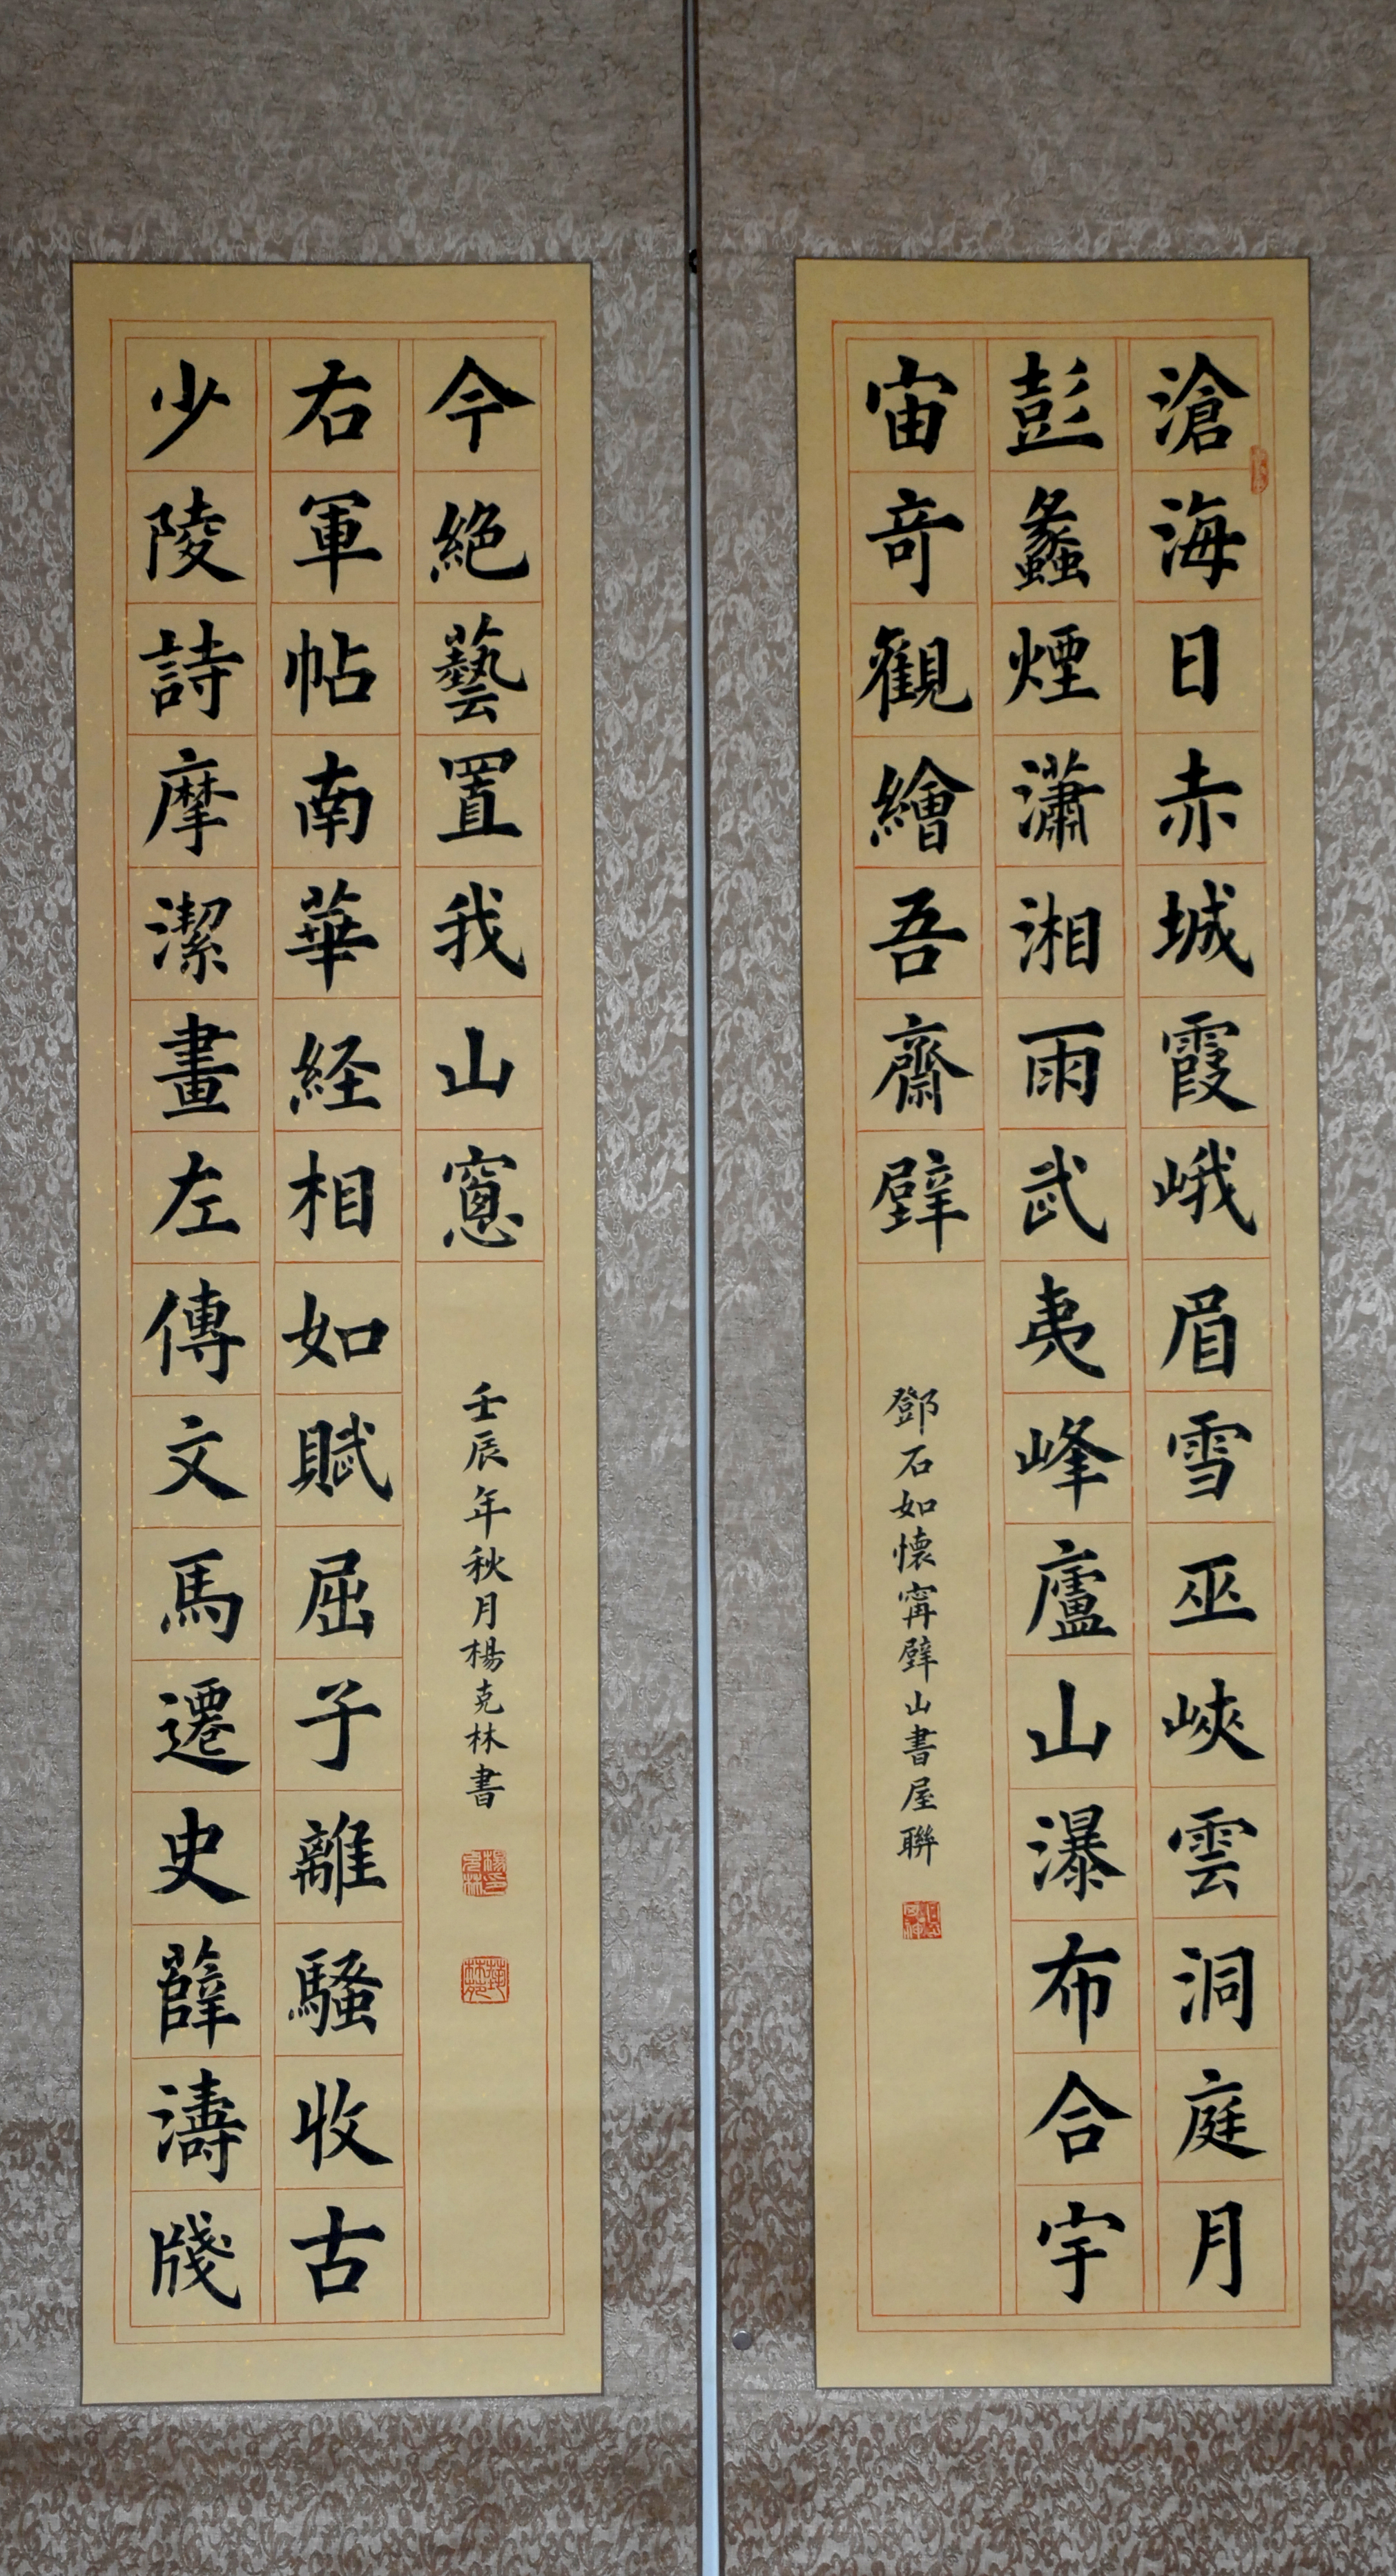 滄海日赤城霞峨眉雪巫峽雲洞庭月
彭蠡煙瀟湘雨武夷峰廬山瀑布合宇
宙竒觀繪吾齋壁
鄧石如懷甯壁山書屋聯
少陵詩摩潔畫左傳文馬遷史薛濤牋
右軍帖南華経相如賦屈子離騷收古
今絶藝置我山窻
壬辰年秋月楊克林書